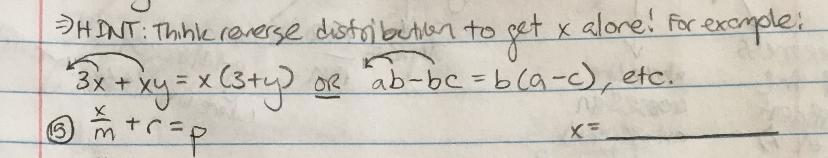 ⇒HINT: Think reverse distribution to get x alone! For example:
3x + xy = x(3+y) OR ab-bc = b(a-c), etc.
⑮ x/m + r = p x= ________